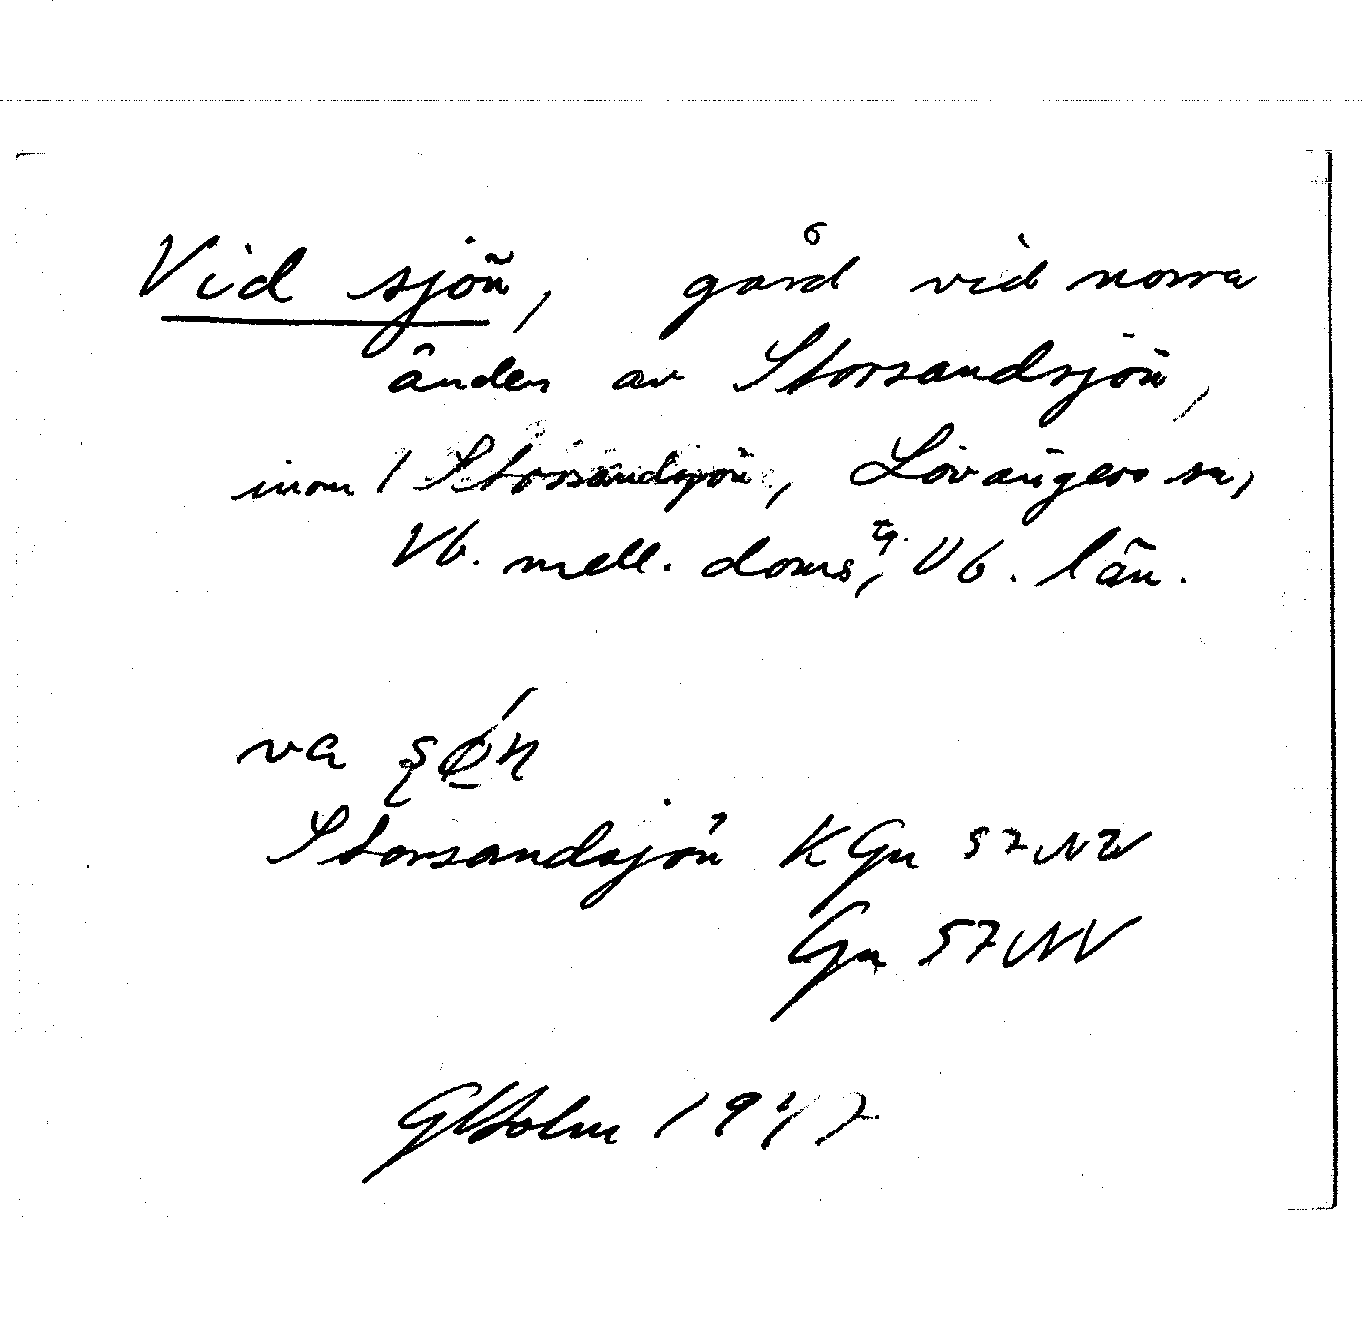 Vid sjön, gård vid norra
änden av Storsandsjön,
inom 1 Storsandsjön, Lövångers sn,
Vb. mell. doms tg., Vb. län.
va
Storsandsjön KGu 57 NV
Gu 57 NV
GHolm 1947